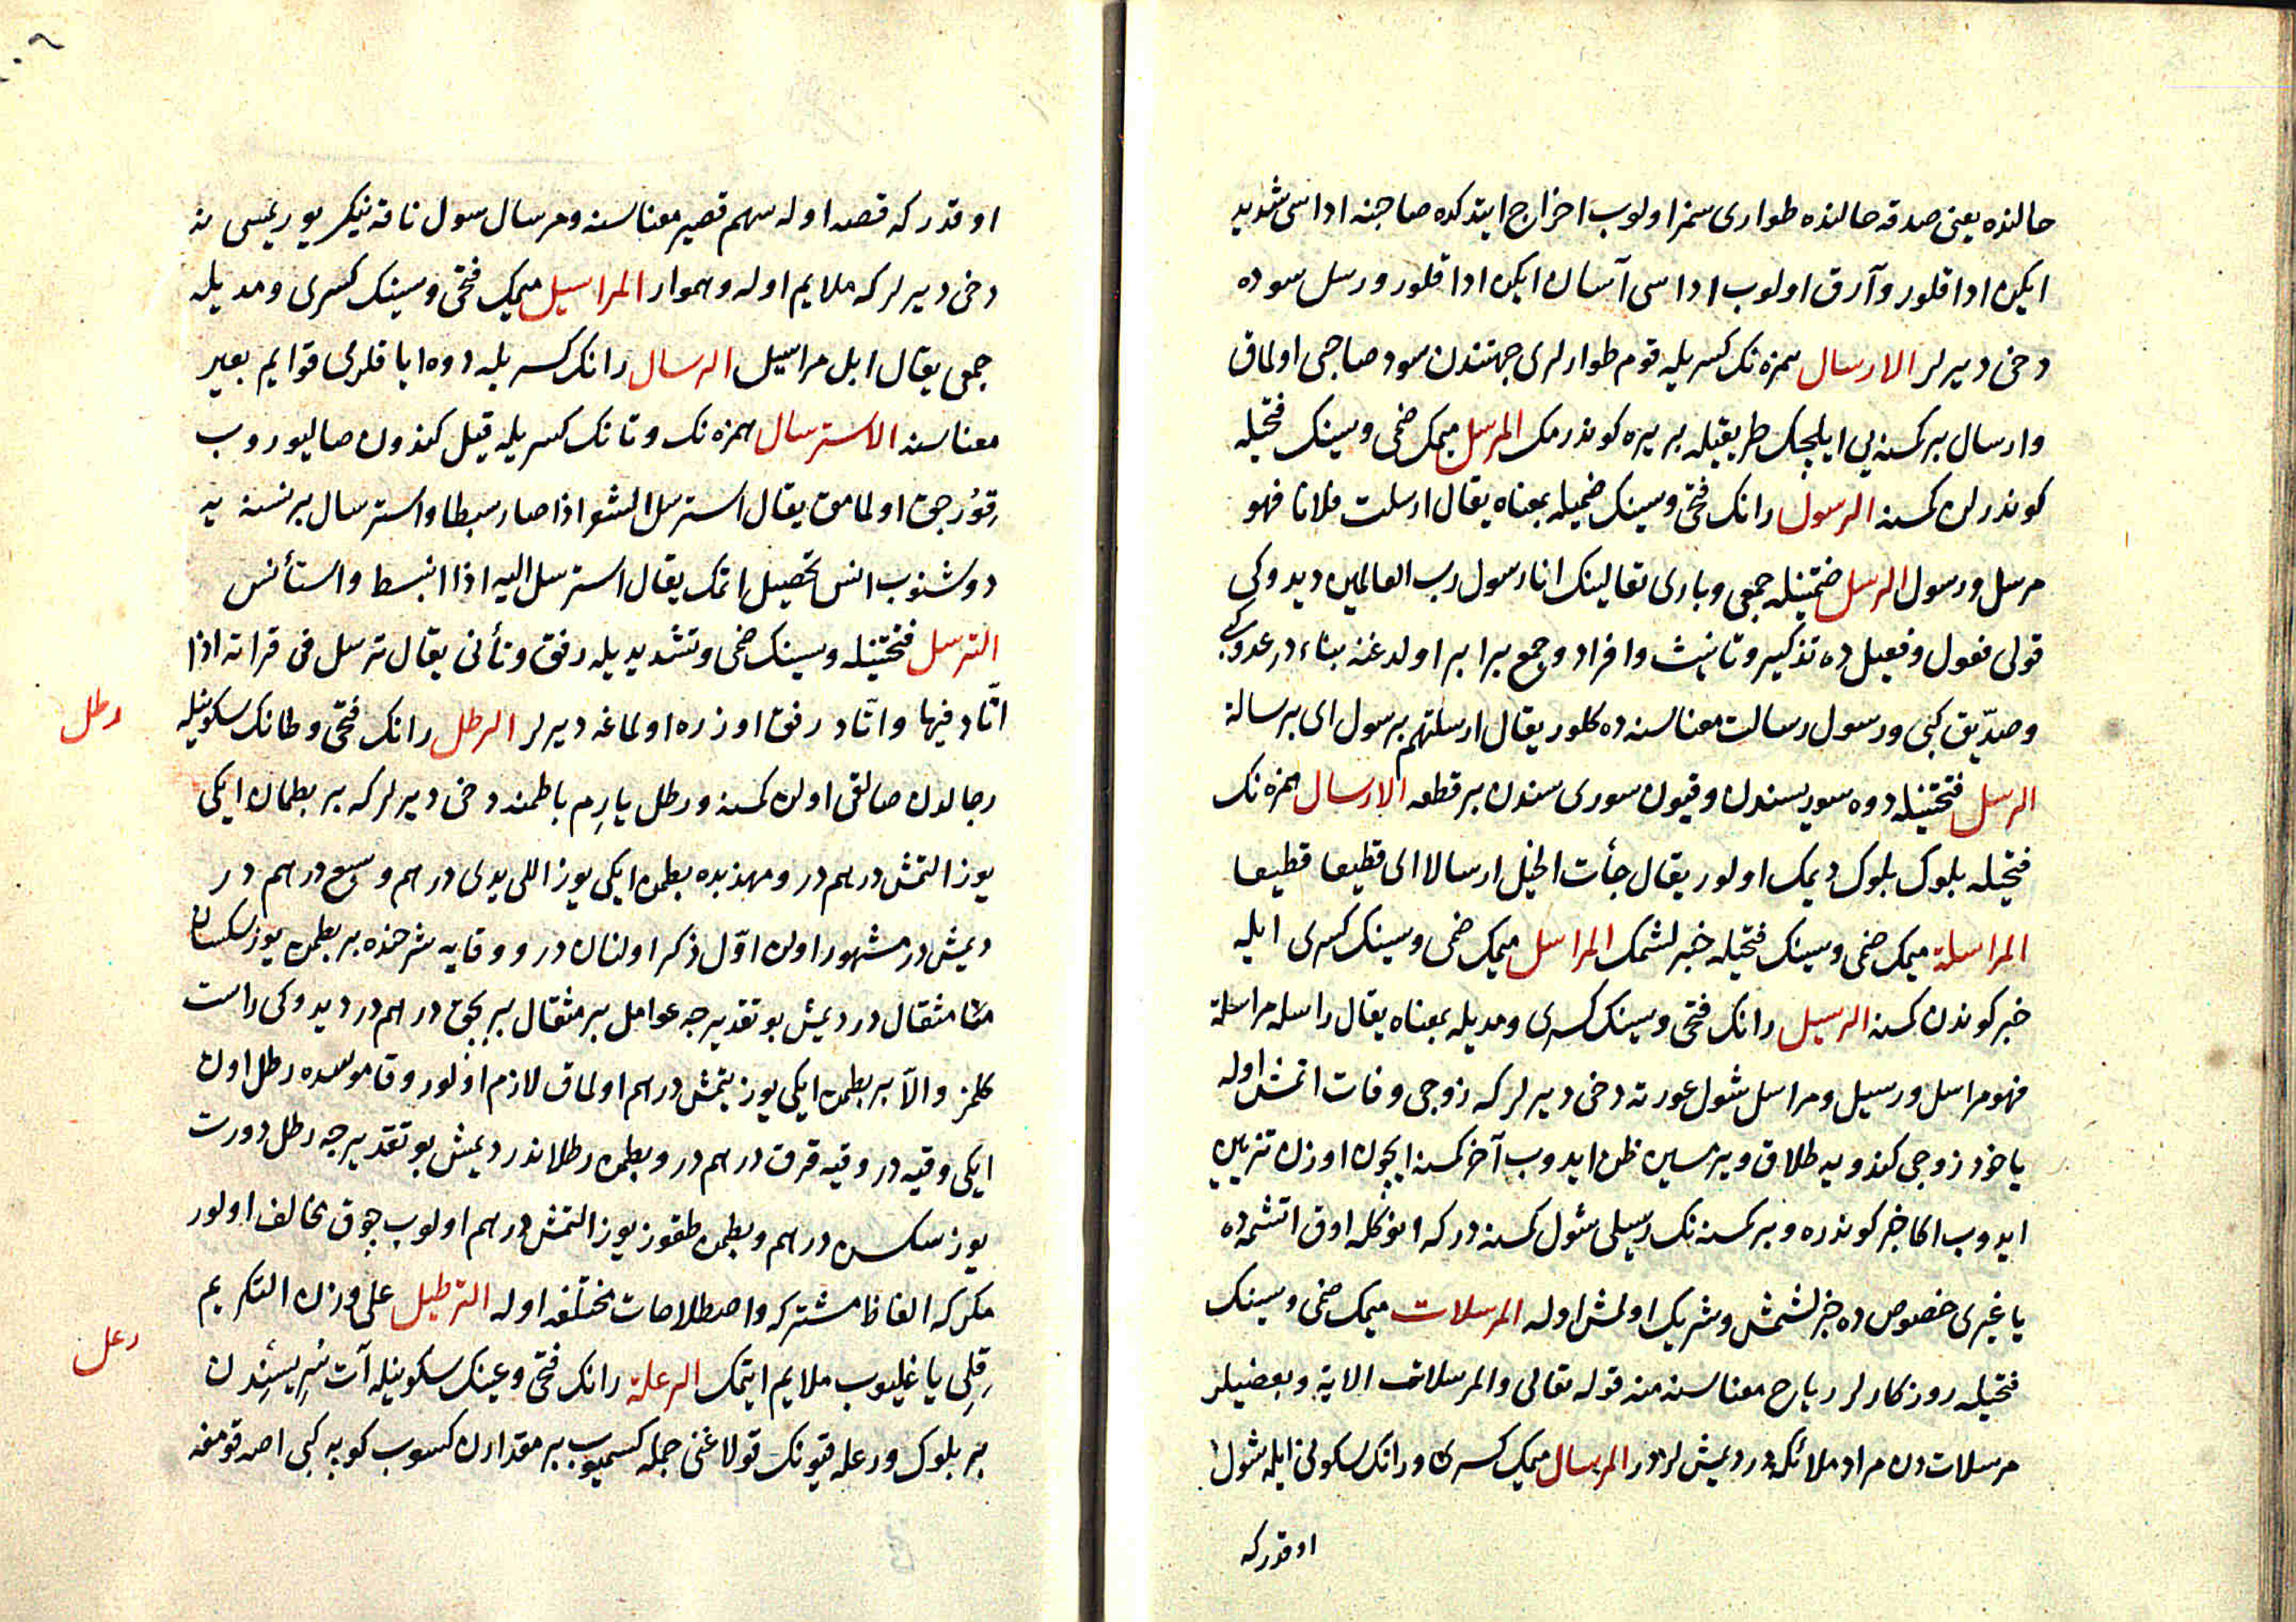 حالنده یعنی صدقه حالنده طواری سمز اولوب اخراج ایتدکده صاحبنه اداسی شدید
ایکن ادا قلور و آرق اولوب اداسی آسان ایکن ادا قلور و رسل سوده
دخی دیرلر الارسال همزه نک کسریله قوم طوارلری جهتندن سود صاحبی اولماق
و ارسال بر کسنه یی ایلچیک طریقیله بر یره کوندرمک المرسل میمک ضمی و سینک فتحیله
کوندرلن کسنه الرسول رانک فتحی و سینک ضمیله بمعناه یقال ارسلت فلانا فهو
مرسل و رسول الرسل ضمتینله جمعی و باری تعالینک انا رسول رب العالمین دیدوکی
قولی فعول و فعیل ده تذکیر و تانیث و افراد و جمع برابر اولدغنه بناء در عدو کبی
و صدّیق کبی و رسول رسالت معناسنه ده کلور یقال ارسلتهم برسول ای برسالة
الرسل فتحتینله دوه سوریسندن و قیون سوریسندن بر قطعه الارسال همزه نک
فتحیله بلوک بلوک دیمک اولور یقال جأت الخیل ارسالا ای قطیعا قطیعا
المراسلة میمک ضمی و سینک فتحیله خبرلشمک المراسل میمک ضمی و سینک کسری ایله
خبر کوندن کسنه الرسیل رانک فتحی و سینک کسری و مدیله بمعناه یقال راسله مراسلة
فهو مراسل و رسیل و مراسل شول عورته دخی دیرلر که زوجی وفات اتمش اوله
یا خود زوجی کندویه طلاق ویرمسین ظن ایدوب آخر کسنه ایچون اوزن تزیین
ایدوب اکا خبر کوندره و بر کسنه نک رسیلی شول کسنه در که انوکله اوق اتشمه ده
یا غیری خصوص ده خبرلشمش و شریک اولمش اوله المرسلات میمک ضمی و سینک
فتحیله روزکارلر ریاح معناسنه منه قوله تعالی والمرسلات الایة و بعضیلر
مرسلات دن مراد ملائکه در دیمش لردر المرسال میمک کسری و رانک سکونی ایله شول
اوقدر که
اوقدر که قصه اوله سهم قصیر معناسنه و مرسال سول ناقه نیکر یوریمسی نه
دخی دیرلر که ملایم اوله و هموار المراسیل میمک فتحی و سینک کسری و مدیله
جمعی یقال ابل مراسیل الرسال رانک کسریله دوه ایاقلری قوایم بعیر
معناسنه الاسترسال همزه نک و تانک کسریله قیل کندون صالیوروب
قوزجق اولمامق یقال استرسل الشعر اذا صار سبطا و استرسال بر نسنه یه
دوشنوب انس تحصیل اتمک یقال استرسل الیه اذا انبسط و استأنس
الترسل فتحتینله و سینک ضمی و تشدیدیله رفق و تأنی یقال ترسل فی قراته اذا
اتّاد فیها و اتّاد رفق اوزره اولماغه دیرلر الرطل رانک فتحی و طانک سکونیله
رطل
رجالدن صالقی اولن کسنه و رطل یارم باطمنه دخی دیرلر که بر بطمان ایکی
یوز التمش درهم در و مهذبده بطمن ایکی یوز اللی یدی درهم و سبع درهم در
دیمش در مشهور اولن اوّل ذکر اولنان در و وقایه شرحنده بر بطمن یوز سکسان
مثقال در دیمش بو تقدیرجه عوامل بر مثقال بر بچق درهم در دیدوکی راست
کلمز و الّا بر بطمن ایکی یوز یتمش درهم اولماق لازم اولور و قاموسده رطل اون
ایکی وقیه در وقیه قرق درهم در و بطمن رطلاندر دیمش بو تقدیرجه رطل دورت
یوز سکسن درهم و بطمن طقوز یوز التمش درهم اولوب چوق مخالف اولور
مکرکه الفاظ مشترکه و اصطلاحات مختلفه اوله الترطیل علی وزن التکریم
قلی یاغلیوب ملایم ایتمک الرعلة رانک فتحی و عینک سکونیله آت سریسندن
رعل
بر بلوک و رعله قیونک قولاغنی جمله کسمیوب بر مقدارن کسوب کوپه کبی اصه قومغه